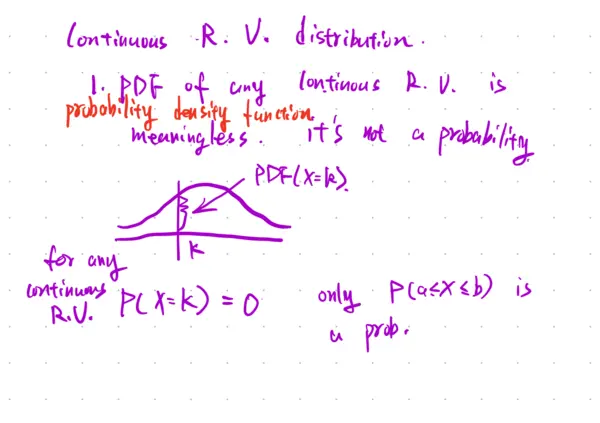 Continuous R. V. distribution.
1. PDF of any Continous R. V. is
probability density function.
meaningless. it's not a probability
PDF(X=k).
k
for any
continuous
R.V. P(X=k) = 0
only P(a≤X≤b) is
a prob.